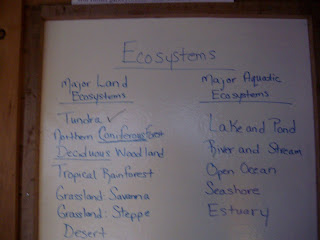 Ecosystems
Major Land
Ecosystems
Tundra ✓
Northern Coniferous forest
Deciduous Woodland
Tropical Rainforest
Grassland: Savanna
Grassland: Steppe
Desert
Major Aquatic
Ecosystems
Lake and Pond
River and Stream
Open Ocean
Seashore
Estuary